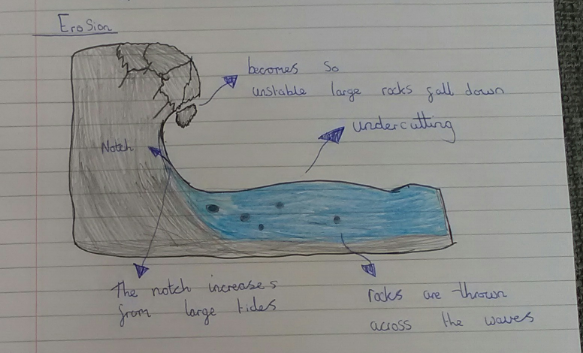 Erosion
becomes so
unstable large rocks fall down
undercutting
Notch
The notch increases
from large tides
rocks are thrown
across the waves